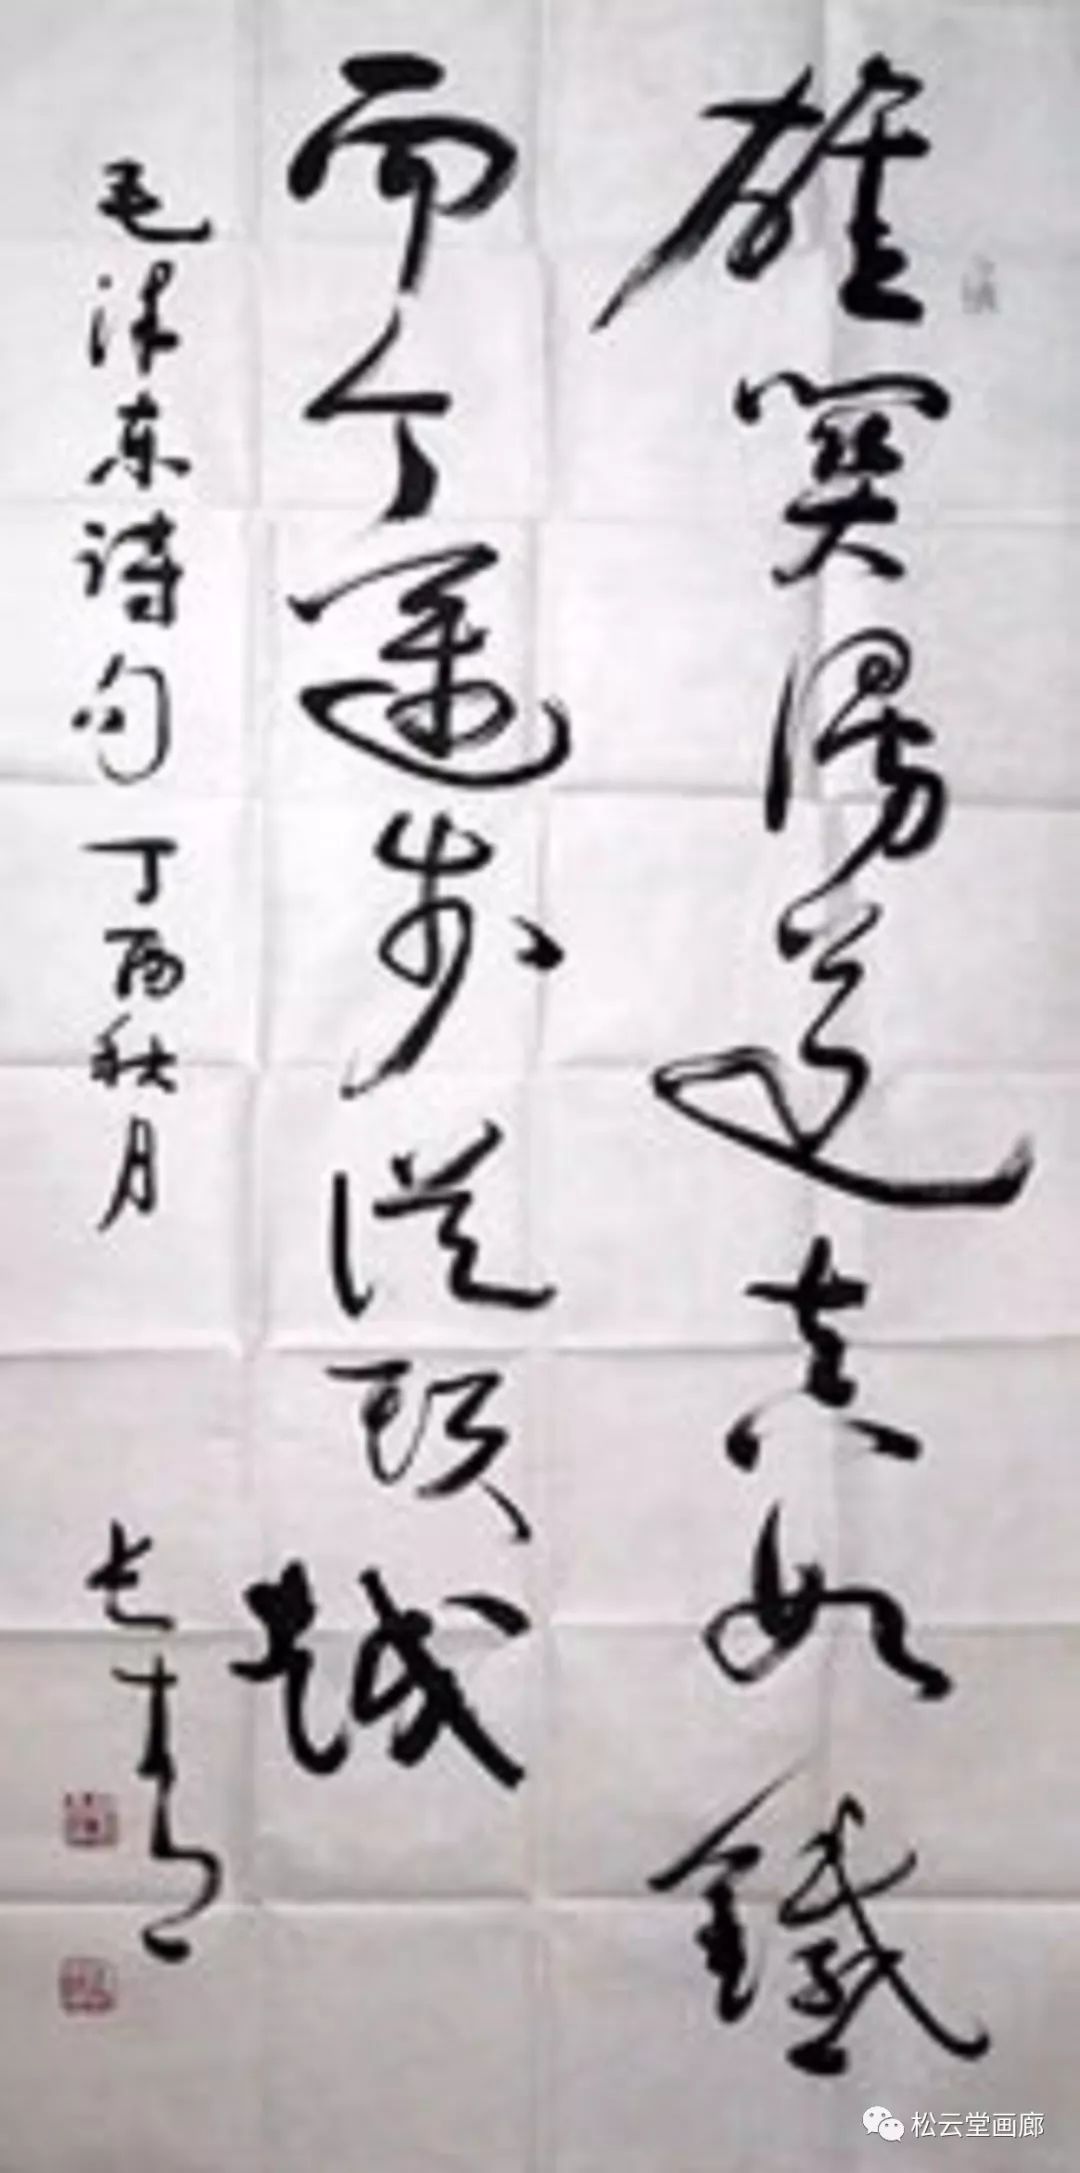 雄關漫道真如鐵
而今邁步從頭越
毛泽东诗句 丁酉秋月
长青
松云堂画廊